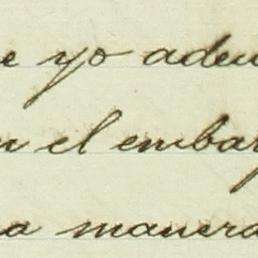 e yo adeu
n el embar
na manera